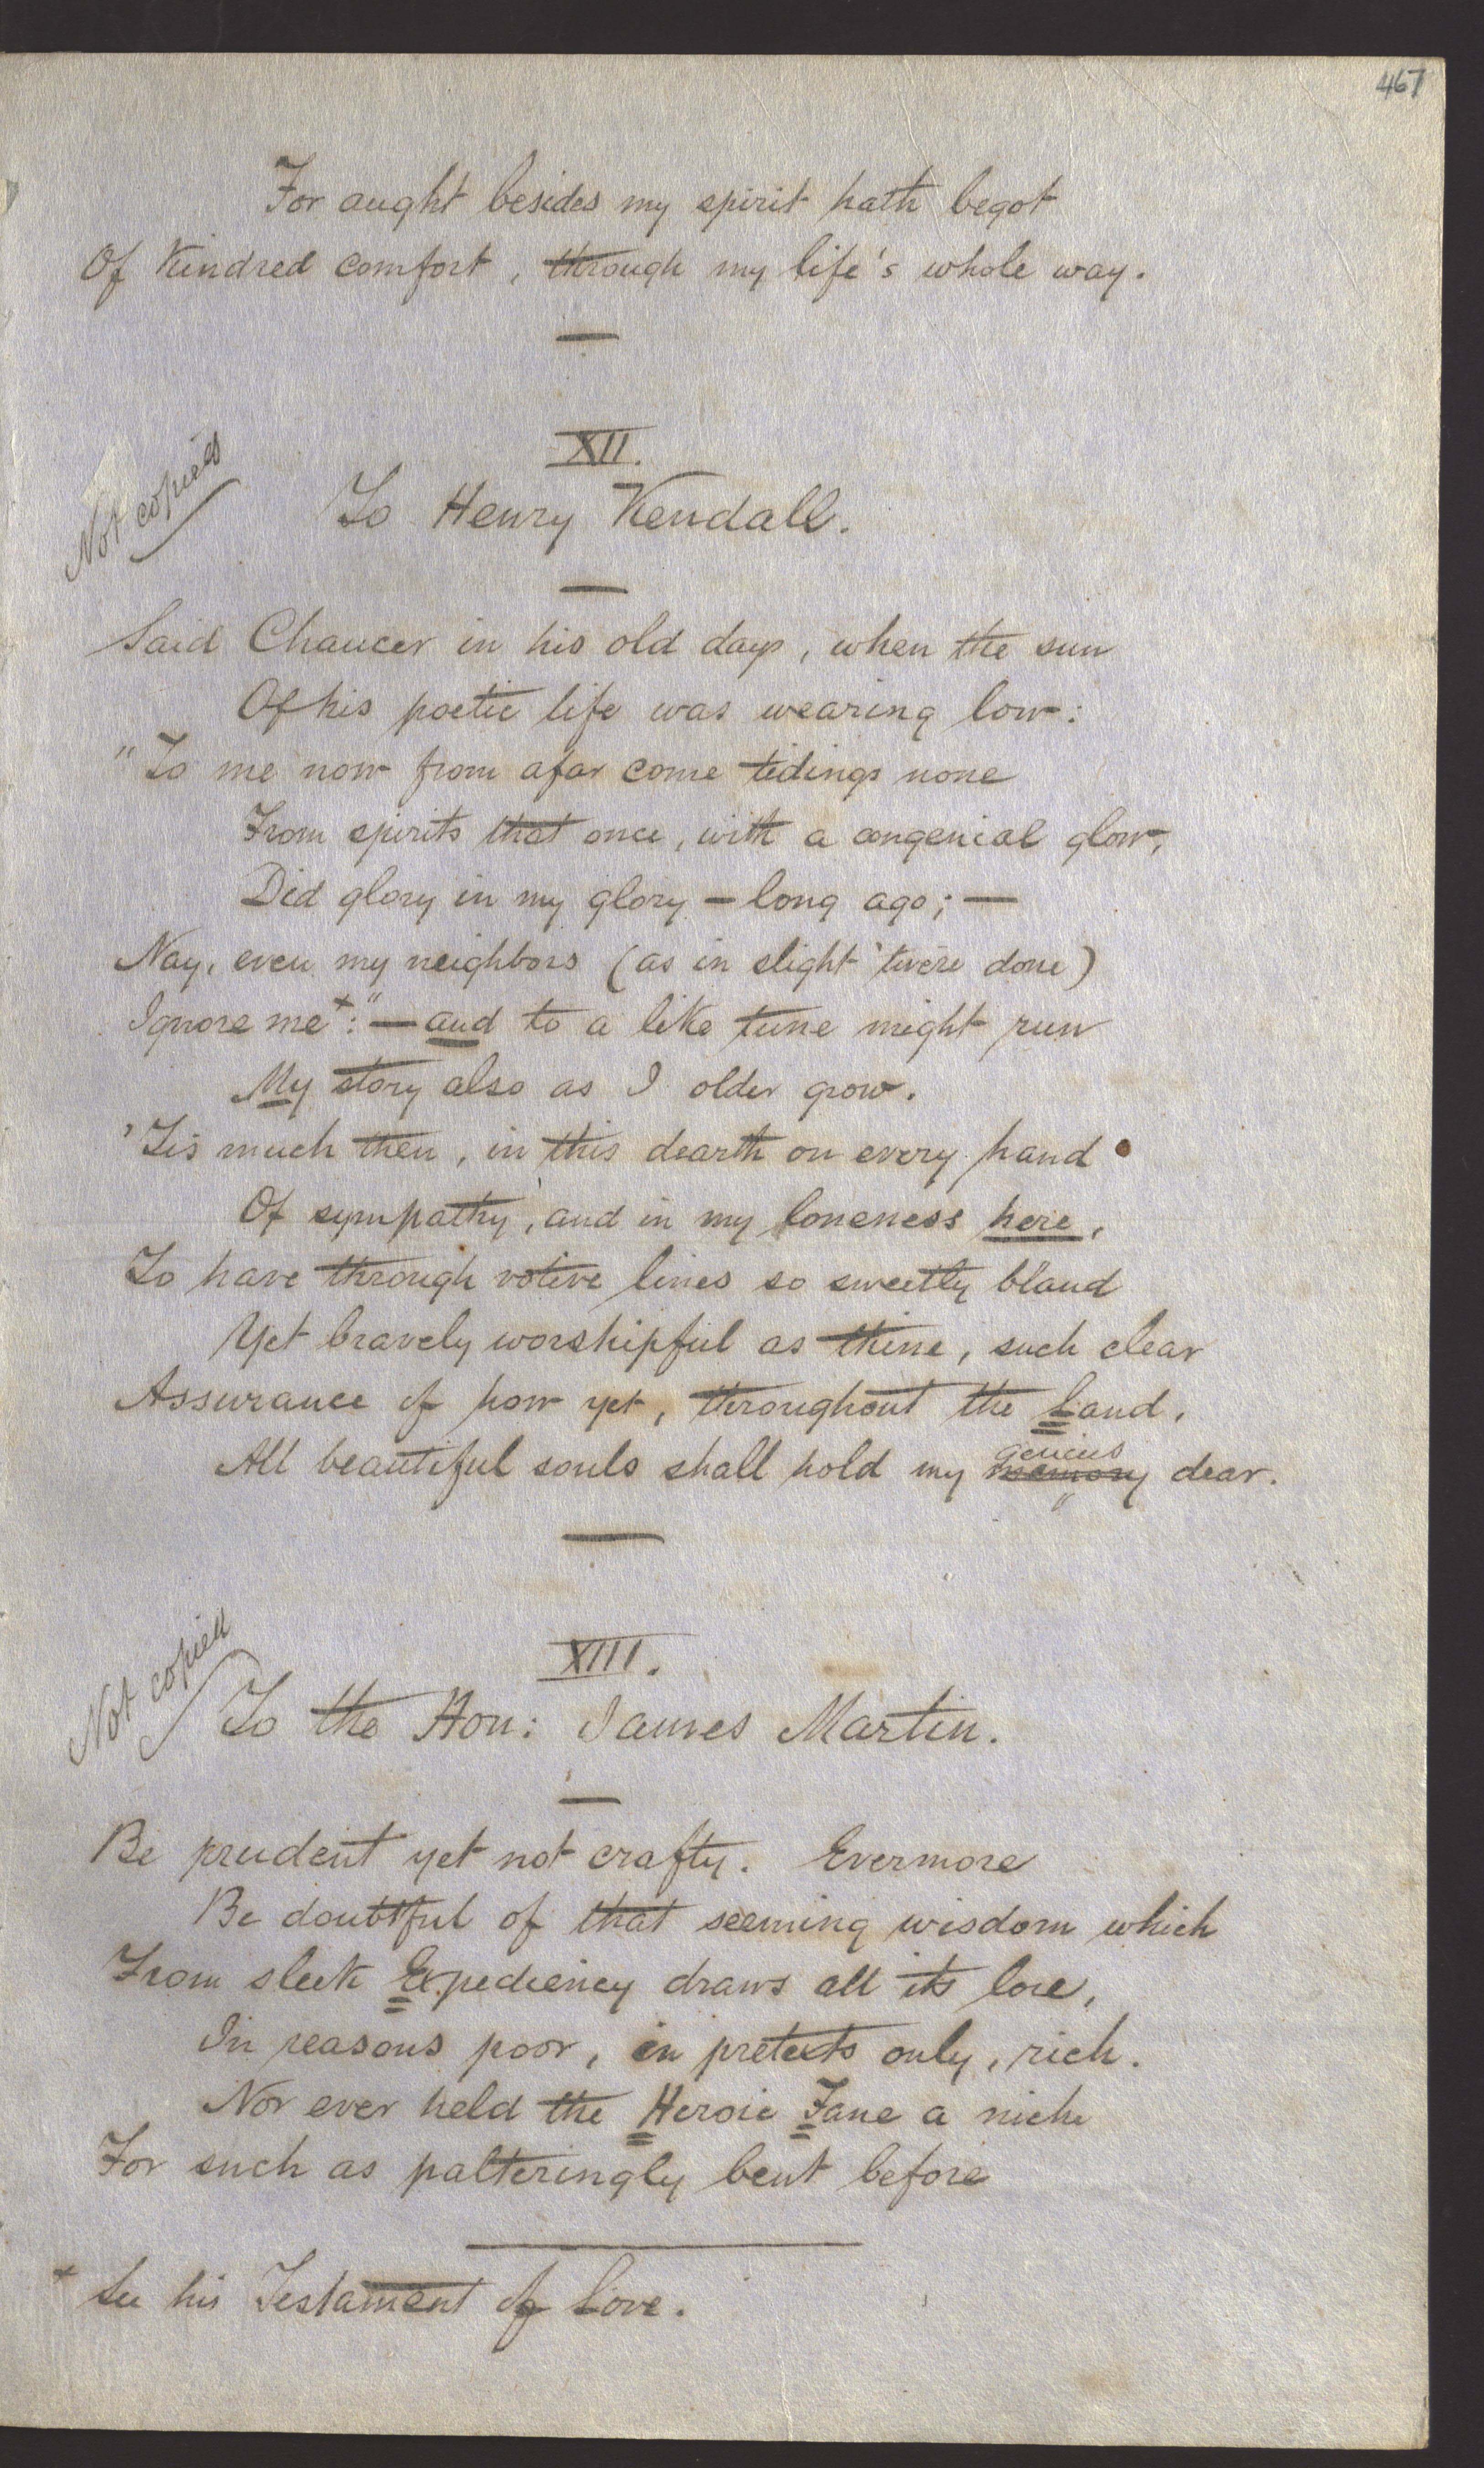 467
For aught besides my spirit hath begot
Of kindred comfort, through my life's whole way.
XII.
Not copied
To Henry Kendall.
Said Chaucer in his old days, when the sun
Of his poetic life was wearing low:
"To me now from afar come tidings none
From spirits that once, with a congenial glow,
Did glory in my glory — long ago; —
Nay, even my neighbors (as in slight 'twere done)
Ignore me+:" — and to a like tune might run
My story also as I older grow.
'Tis much then, in this dearth on every hand
Of sympathy, and in my loneness here,
To have through votive lines so sweetly bland
Yet bravely worshipful as thine, such clear
Assurance of how yet, throughout the Land,
genius
All beautiful souls shall hold my memory dear.
XIII.
Not copied
To the Hon: James Martin.
Be prudent yet not crafty. Evermore
Be doubtful of that seeming wisdom which
From sleek Expediency draws all its lore,
In reasons poor, in pretexts only, rich.
Nor ever held the Heroic Fane a niche
For such as palteringly bent before
+ See his Testament of Love.